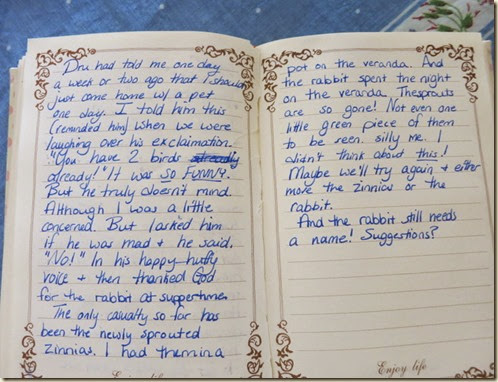 Dru had told me one day
a week or two ago that I should
just come home w/ a pet
one day. I told him this
(reminded him) when we were
laughing over his exclamation.
"You have 2 birds already
already!" It was so FUNNY.
But he truly doesn't mind.
Although I was a little
concerned. But I asked him
if he was mad & he said,
"No!" In his happy huffy
voice & then thanked God
for the rabbit at suppertime.
The only casualty so far has
been the newly sprouted
zinnias. I had them in a
Enjoy life
pot on the veranda. And
the rabbit spent the night
on the veranda. The sprouts
are so gone! Not even one
little green piece of them
to be seen. silly me. I
didn't think about this!
Maybe we'll try again & either
move the zinnias or the
rabbit.
And the rabbit still needs
a name! Suggestions?
Enjoy life